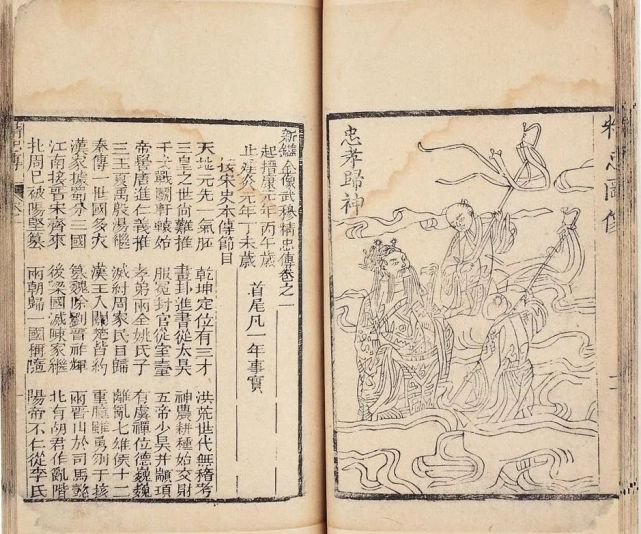 精忠圖像
忠孝歸神
新鐫全像武穆精忠傳卷之一
起靖康元年丙午歲
止建炎元年丁未歲 首尾凡一年事實
按宋史本傳節目
天地元先一氣胚 乾坤定位有三才 洪荒世代無稽考
三皇之世尚難推 畫卦造書從太昊 神農耕種始交財
干戈戰國軒轅始 服冕封官從室臺 五帝少昊并顓頊
帝嚳唐進仁義推 孝弟兩全姚氏子 有虞禪位德巍巍
三王夏禹殷湯繼 滅紂周家民目歸 離亂七雄侯十二
秦傳二世國多災 漢王入關楚皆約 重瞳雖勇刎于垓
漢家據蜀分三國 篡魏除劉晉祚輝 兩晉亡於司馬懿
江南接晉宋齊來 後梁國滅陳家繼 北有胡君作亂階
北周已被陽堅篡 兩朝歸一國稱隨 陽帝不仁從李氏
精忠傳 卷一